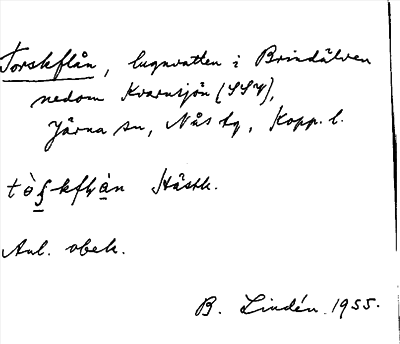 Torskflån, lugnvatten i Brindälven
nedom Kvarnsjön (SSV),
Järna sn, Nås tg, Kopp. l.
Hästb.
Anl. obek.
B. Lindén 1955.